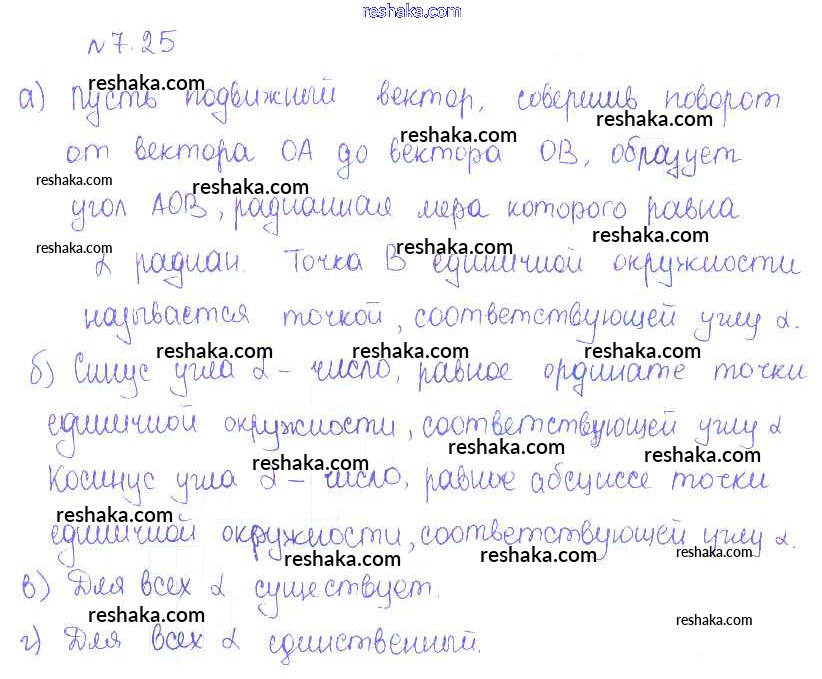 reshaka.com
№7.25
reshaka.com
а) Пусть подвижный вектор, совершив поворот
reshaka.com reshaka.com
от вектора ОА до вектора ОВ, образует
reshaka.com reshaka.com
угол АОВ, радианная мера которого равна
reshaka.com reshaka.com reshaka.com
α радиан. Точка В единичной окружности
называется точкой, соответствующей углу α.
reshaka.com reshaka.com reshaka.com
б) Синус угла α – число, равное ординате точки
единичной окружности, соответствующей углу α
reshaka.com reshaka.com reshaka.com
Косинус угла α – число, равное абсциссе точки
reshaka.com
единичной окружности, соответствующей углу α.
reshaka.com reshaka.com reshaka.com
в) Для всех α существует.
reshaka.com reshaka.com reshaka.com
г) Для всех α единственный.